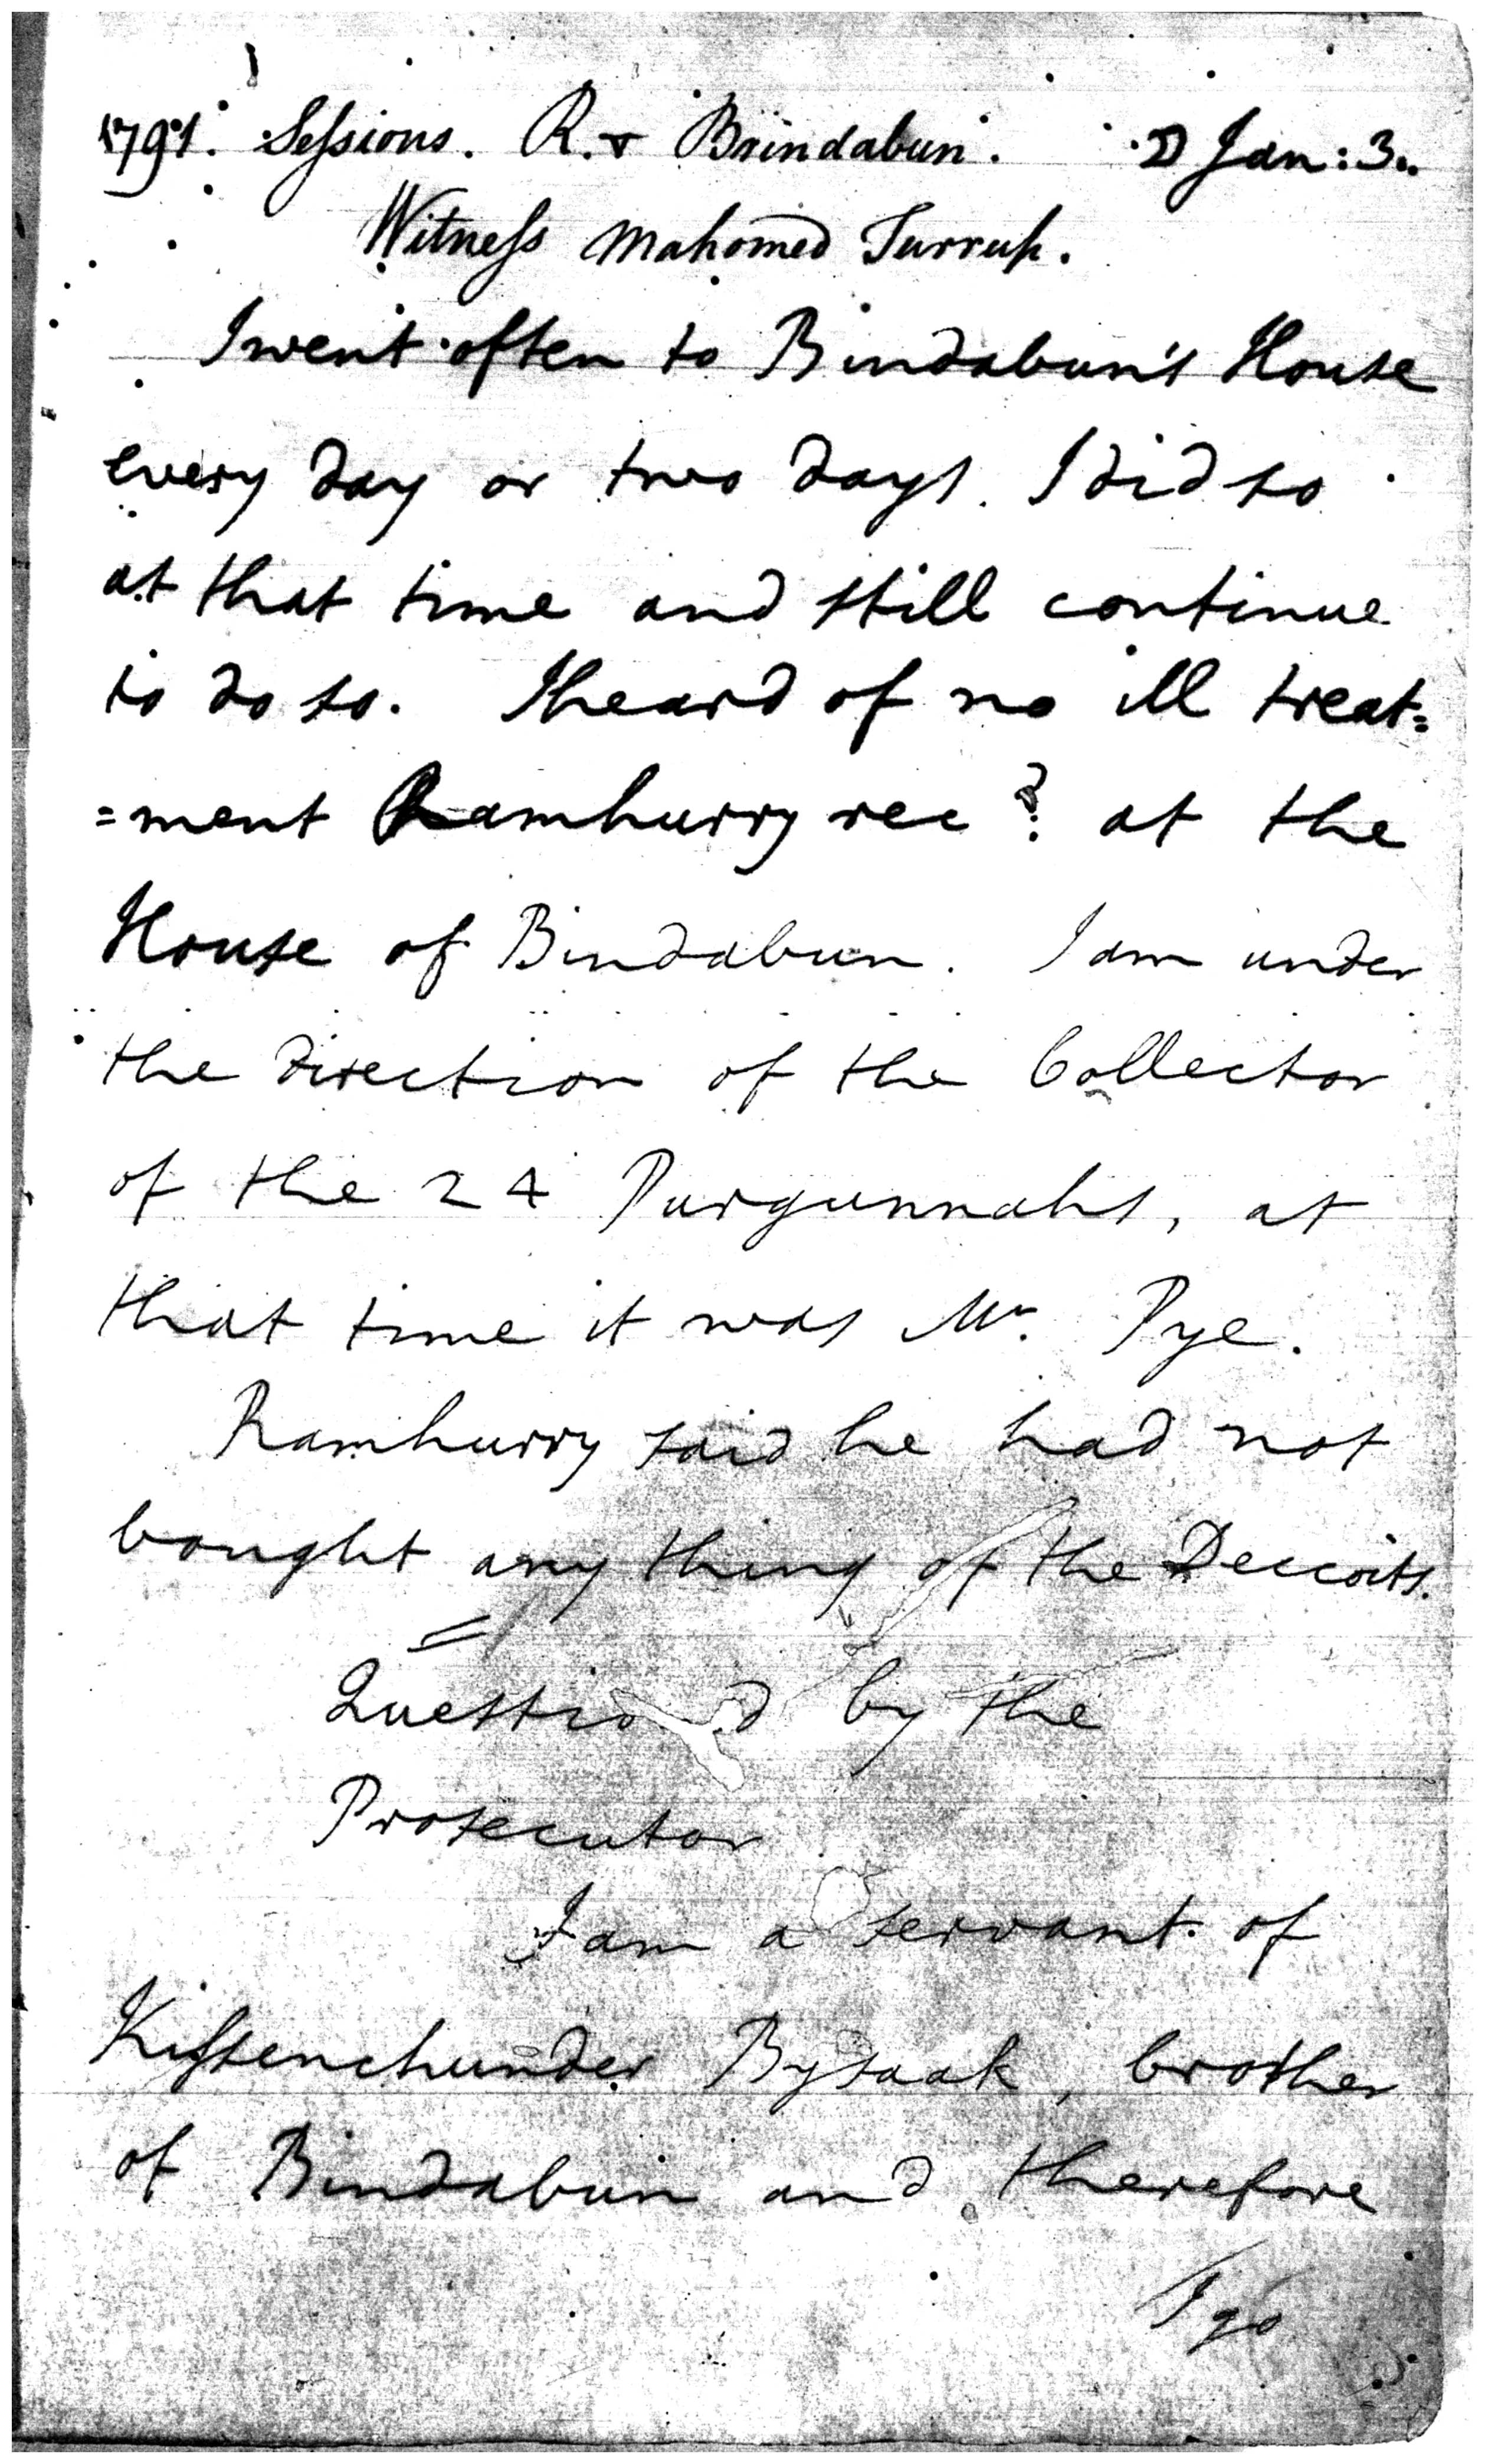 1791. Sessions. R. v Brindabun. D Jan: 3..
Witness Mahomed Surruf.
I went often to Bindabun's House
every day or two days. I did so
at that time and still continue
to do so. I heard of no ill treat=
=ment Ramhurry rec.d at the
House of Bindabun. I am under
the direction of the Collector
of the 24 Purgunnahs, at
that time it was Mr. Pye.
Ramhurry said he had not
bought any thing of the Deccoits.
Questiond by the
Prosecutor
I am a servant of
Kissenchunder Bysaak, brother
of Bindabun and therefore
I go